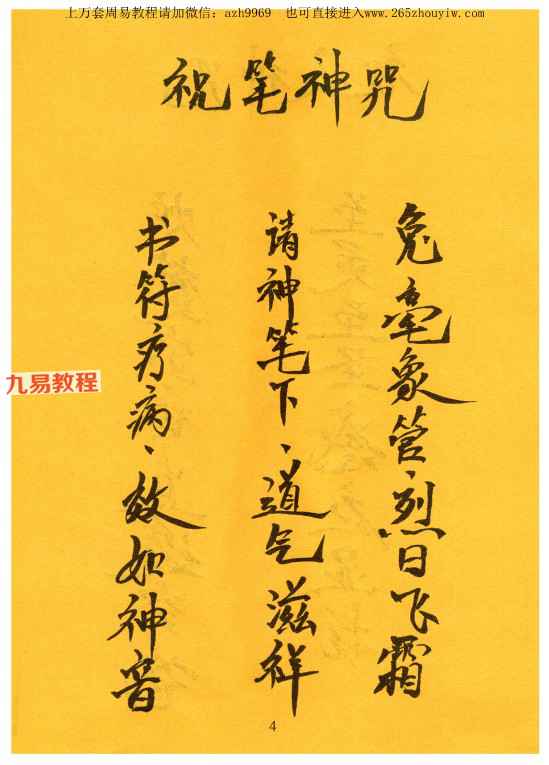 上万套周易教程请加微信：azh9969 也可直接进入www.265zhouyiw.com
祝笔神咒
兔毫象管、烈日飞霜
请神笔下、道气滋祥
书符疗病、效如神音
九易教程
4